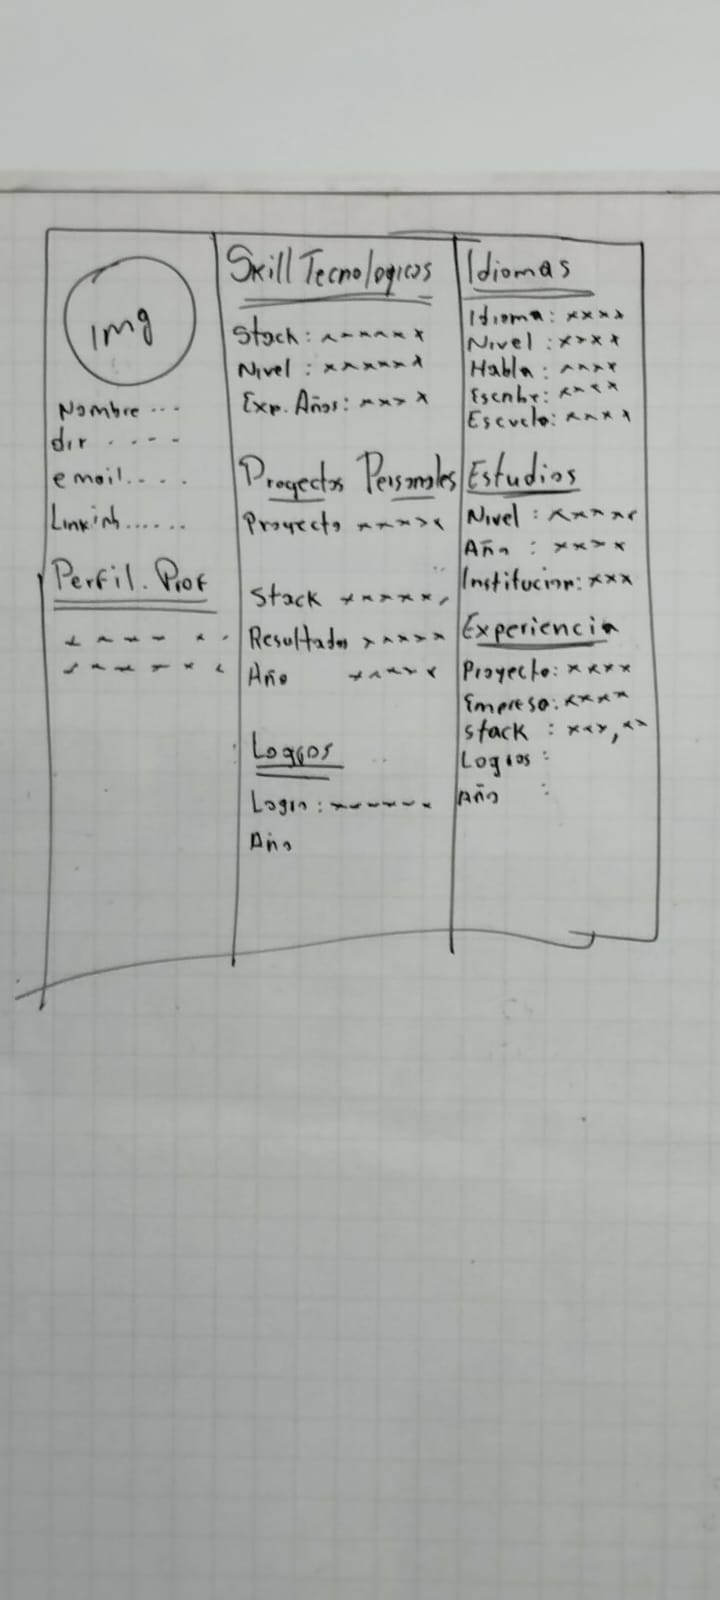 img
Nombre ...
dir . . . .
email. . . .
Linkinh......
Perfil. Prof
x x x x x x
x x x x x x
Skill Tecnologicos
Stack : x x x x x x
Nivel : x x x x x x
Exp. Años: x x x x
Proyectos Personales
Proyecto x x x x x
Stack x x x x x,
Resultados x x x x x
Año x x x x x
Logros
Logro : x x x x x x
Año
Idiomas
Idioma: x x x x
Nivel : x x x x
Habla : x x x x
Escribe: x x x x
Escuela: x x x x
Estudios
Nivel : x x x x x
Año : x x x x
Institucion: x x x
Experiencia
Proyecto: x x x x
Empresa: x x x x
Stack : x x x, x x
Logros :
Año :